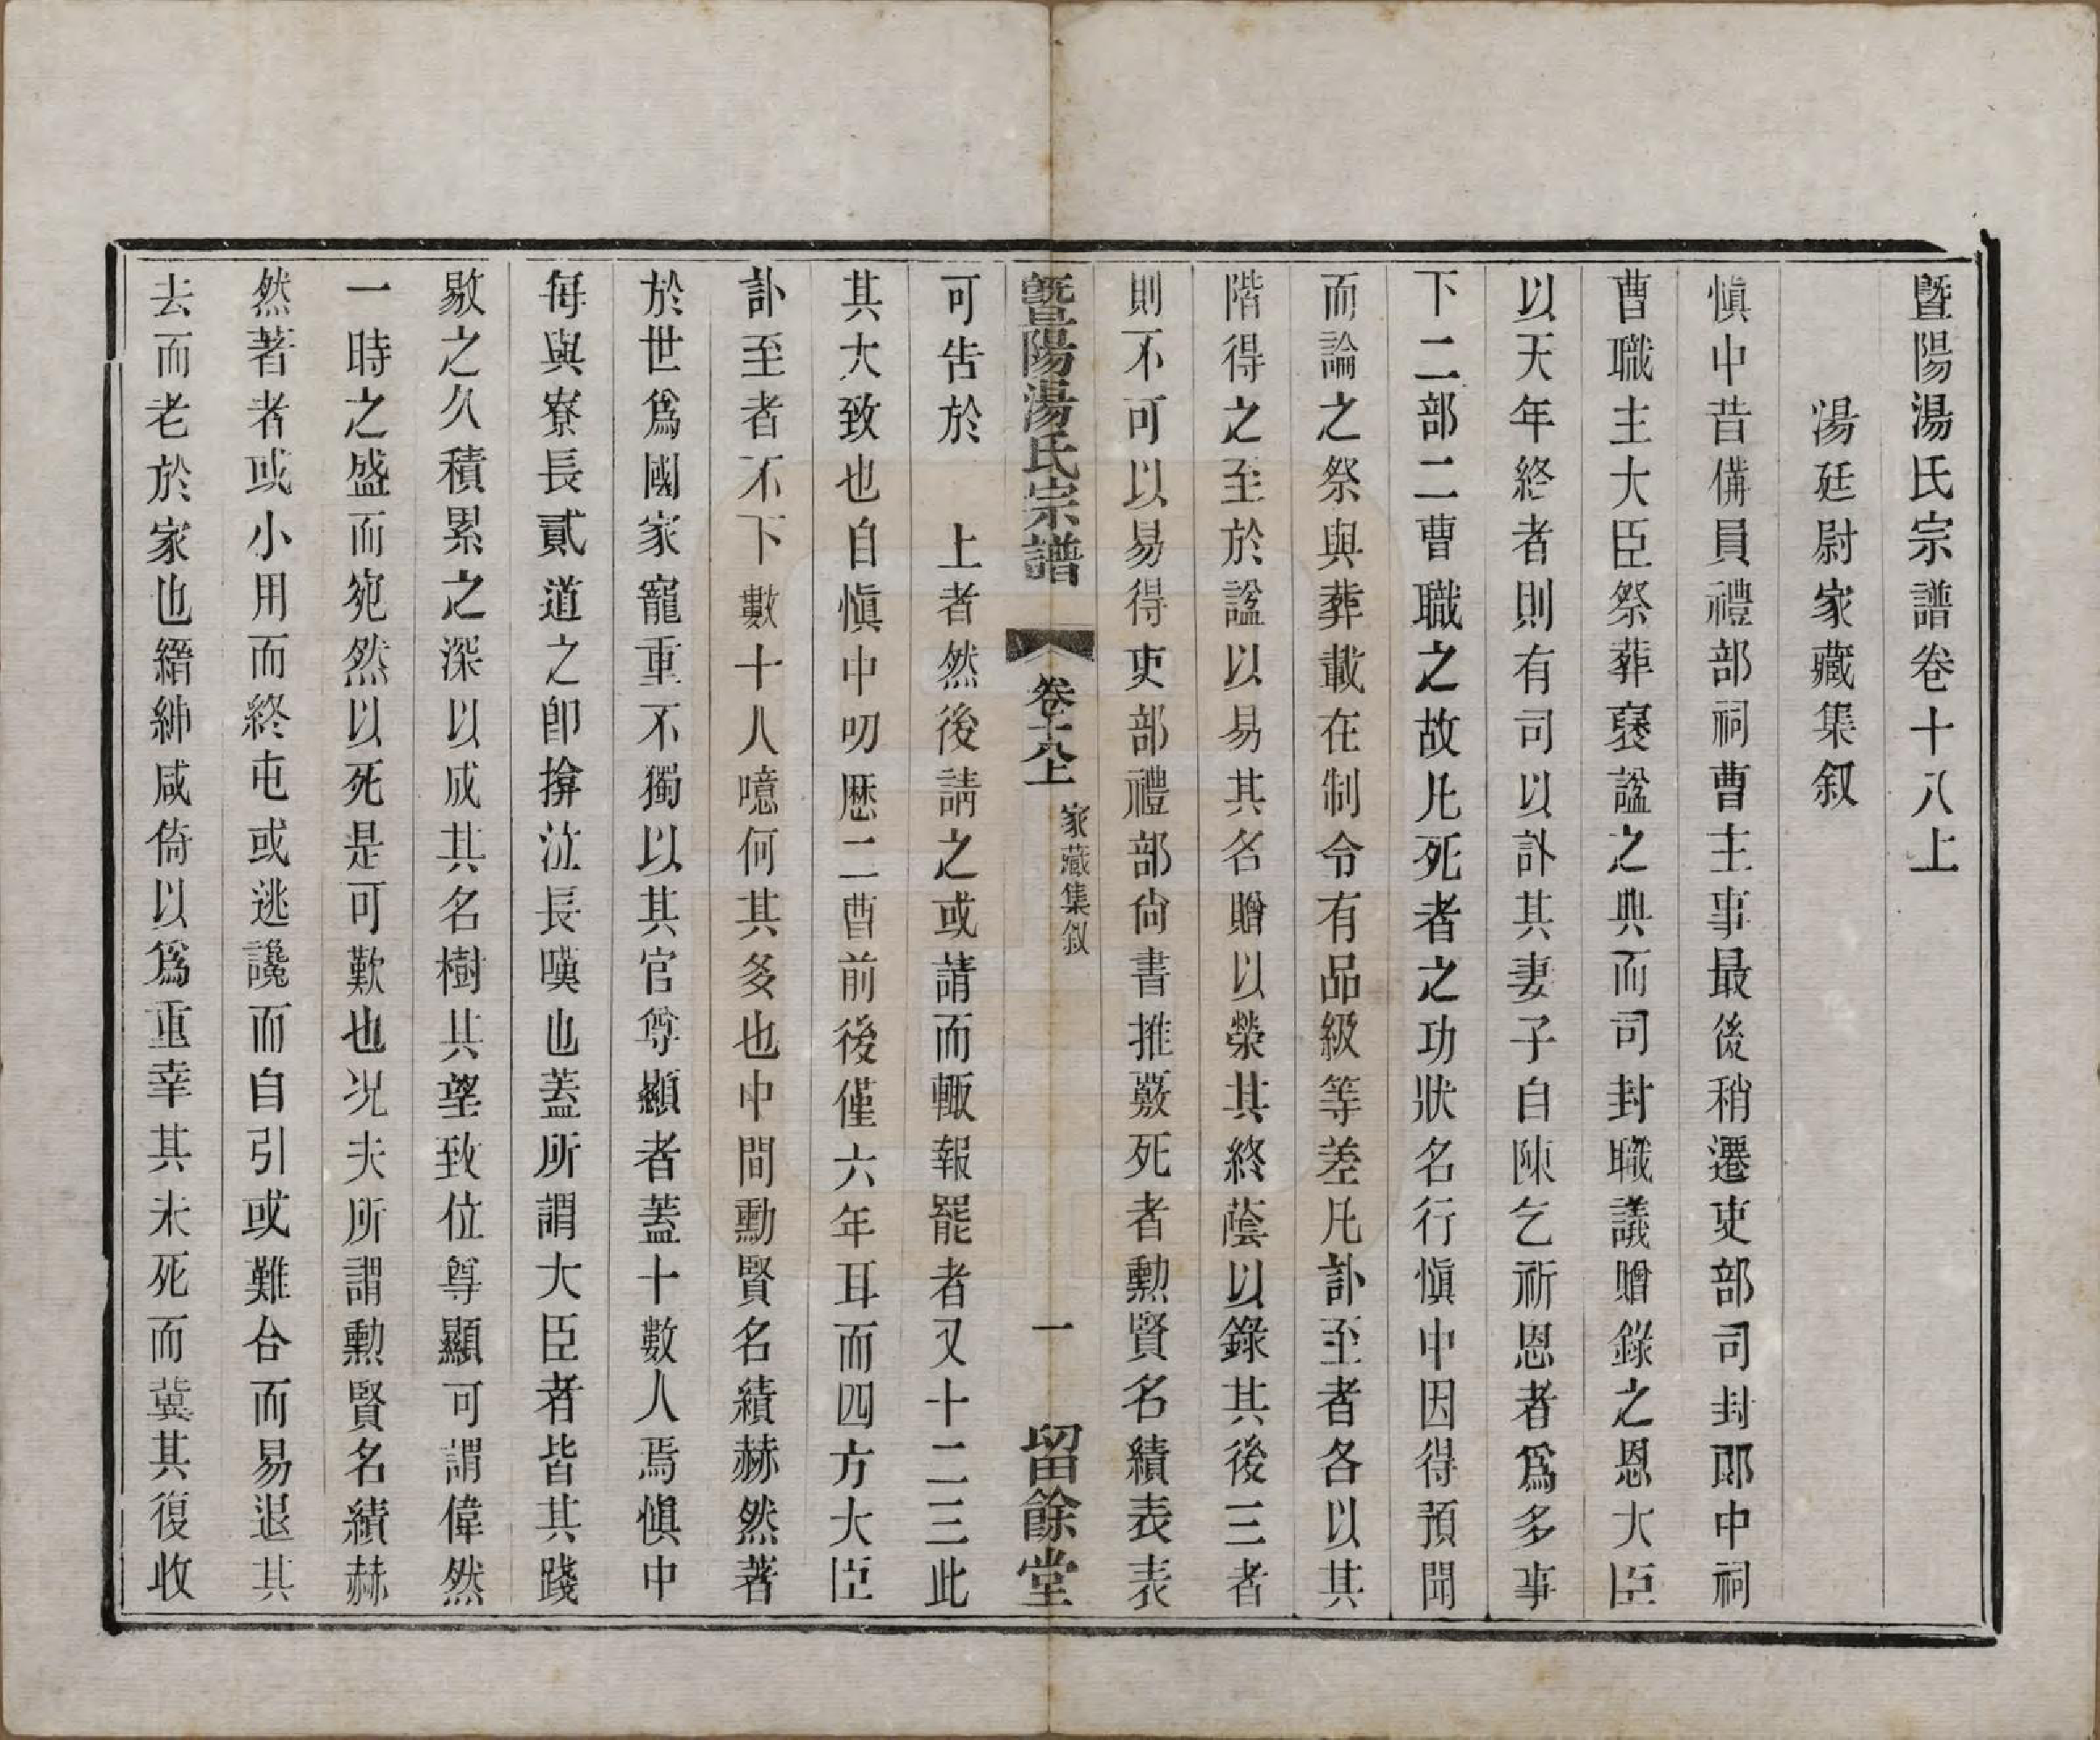 暨陽湯氏宗譜卷十八上
湯廷尉家藏集叙
愼中昔備員禮部祠曹主事最後稍遷吏部司封郎中祠
曹職主大臣祭葬褒諡之典而司封職議贈錄之恩大臣
以天年終者則有司以訃其妻子自陳乞祈恩者爲多事
下二部二曹職之故凡死者之功狀名行愼中因得預聞
而論之祭與葬載在制令有品級等差凡訃至者各以其
階得之至於諡以易其名贈以榮其終蔭以錄其後三者
則不可以易得吏部禮部尙書推覈死者勳賢名績表表
暨陽湯氏宗譜
卷十八上
家藏集叙
一
留餘堂
可吿於　上者然後請之或請而輙報罷者又十二三此
其大致也自愼中叨歷二曹前後僅六年耳而四方大臣
訃至者不下數十人噫何其多也中間勳賢名績赫然著
於世爲國家寵重不獨以其官尊顯者蓋十數人焉愼中
每與寮長貳道之卽揜泣長嘆也蓋所謂大臣者皆其踐
敭之久積累之深以成其名樹其望致位尊顯可謂偉然
一時之盛而宛然以死是可歎也况夫所謂勳賢名績赫
然著者或小用而終屯或逃讒而自引或難合而易退其
去而老於家也縉紳咸倚以爲重幸其未死而冀其復收